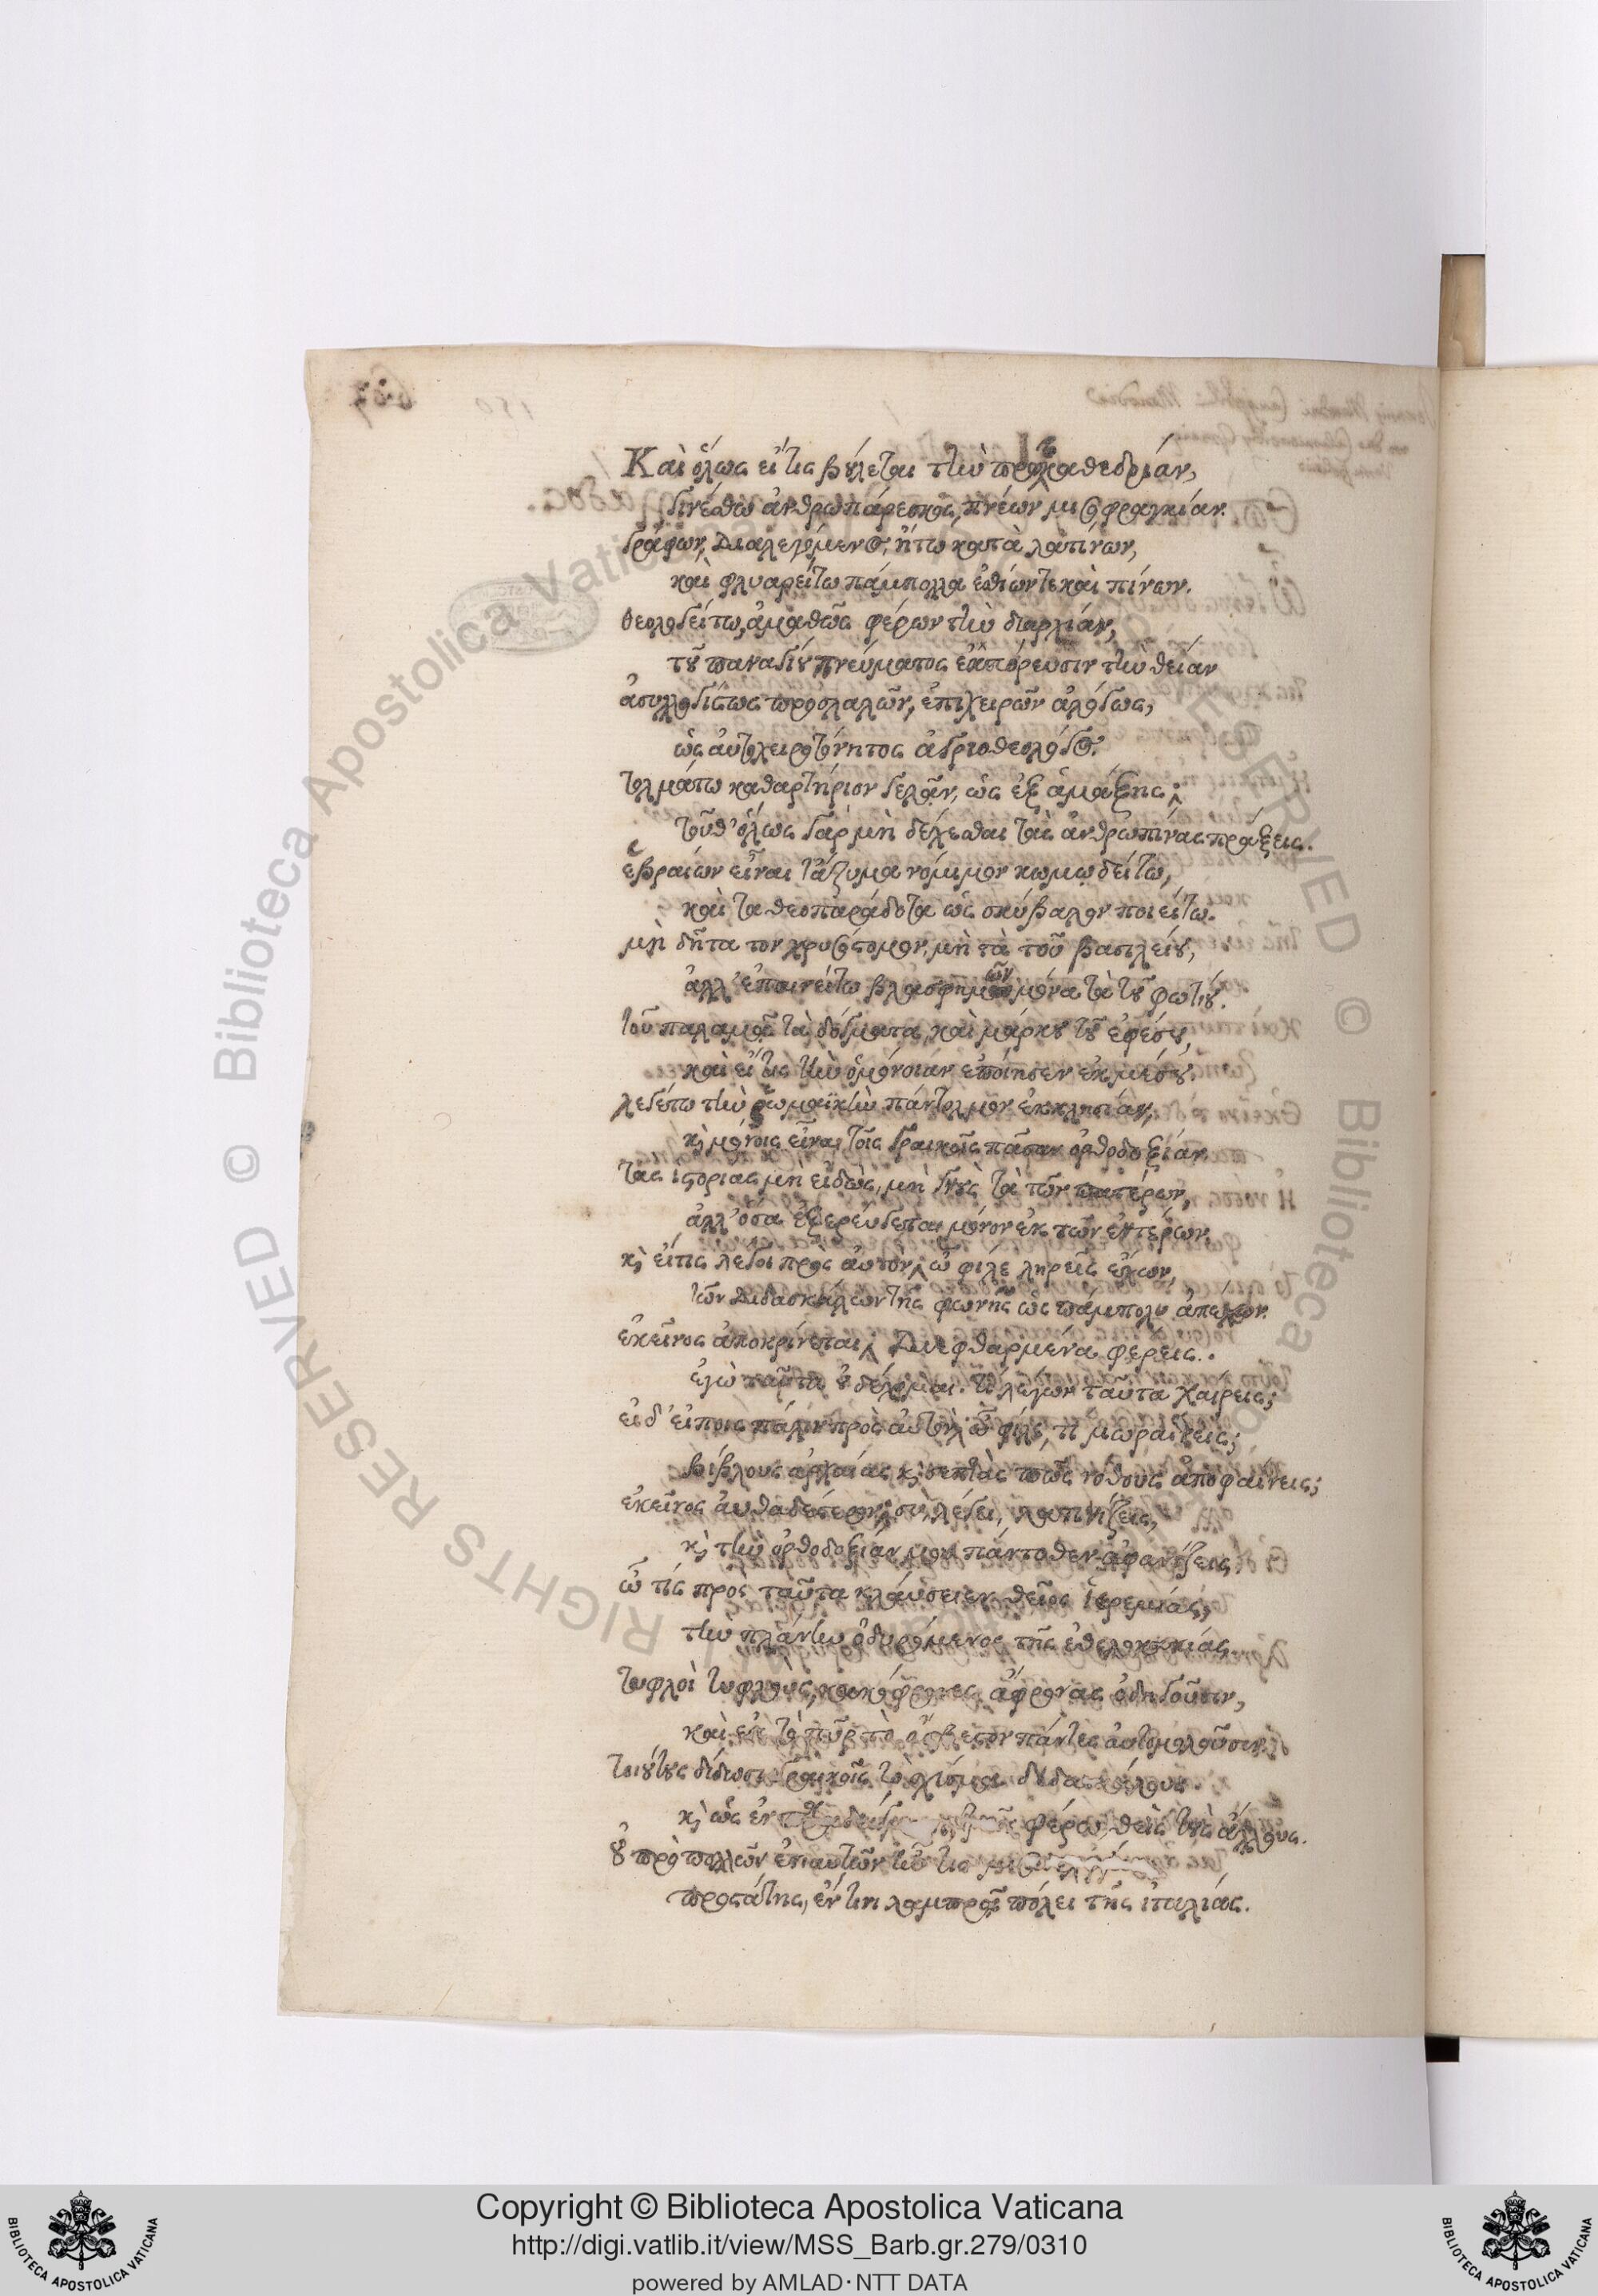 Καὶ ὅλως εἴ τις βούλεται τὴν πρωτοκαθεδρίαν,
γινέσθω ἀνθρωπάρεσκος, πνέων μισοφραγκίαν.
Γράφων, διαλεγόμενος, ἤτω κατὰ λατίνων,
καὶ φλυαρείτω πάμπολλα ἐσθίων τε καὶ πίνων.
θεολογείτω, ἀμαθῶς φέρων τὴν διαρχίαν,
τοῦ παναγίου πνεύματος ἐκπόρευσιν τὴν θείαν
ἀσυλλογίστως προσλαλῶν, ἐπιχειρῶν ἀλόγως,
ὡς αὐτοχειροτόνητος ἀγριοθεολόγος.
τολμάτω καθαρτήριον γελᾶν, ὡς ἐξ ἁμάξης;
τοῦθ' ὅλως γὰρ μὴ δέχεσθαι τὰς ἀνθρωπίνας πράξεις.
ἑβραίων εἶναι τἄζυμα νόμιμον κωμωδείτω,
καὶ τα θεοπαράδοτα ὡς σκύβαλον ποιείτω.
μὴ δῆτα τον χρυσόστομον, μὴ τὰ τοῦ βασιλείου,
ἀλλ' ἐπαινείτω βλασφημῶν μόνα τὰ τοῦ φωτίου.
τοῦ παλαμᾶ τὰ δόγματα, καὶ μάρκου τοῦ ἐφέσου,
καὶ εἴ τις τὴν ὁμόνοιαν ἐποίησεν ἐκ μέσου.
λεγέτω τὴν ῥωμαϊκὴν πάντολμον ἐκκλησίαν,
κὶ μόνοις εἶναι τοῖς γραικοῖς πᾶσαν ὀρθοδοξίαν.
τας ἱστορίας μὴ εἰδὼς, μὴ γνοὺς τὰ τῶν πατέρων,
ἀλλ' ὅσα ἐξερεύγεται μόνον ἐκ τῶν ἐντέρων.
κὶ εἴτις λέγοι πρὸς αὐτὸν, ὦ φίλε ληρεῖς ἔχων,
τῶν διδασκάλων τῆς φωνῆς ὡς πάμπολυ ἀπέχων.
ἐκεῖνος ἀποκρίνεται, διεφθαρμένα φέρεις.
ἐγὼ ταῦτα οὐ δέχομαι. τί λέγων ταῦτα χαίρεις;
εἰ δ' εἴποις πάλιν πρὸς αὐτὸν, ὦ φίλε, τί μωραίνεις;
βίβλους ἀρχαίας κὶ σεπτὰς πῶς νόθους ἀποφαίνεις;
ἐκεῖνος αὐθαδέστερον, σὺ, λέγει, λατινίζεις,
κὶ τὴν ὀρθοδοξίαν μου πάντοθεν ἀφανίζεις.
ὦ τίς πρὸς ταῦτα κλαύσειεν θεῖος ἱερεμίας,
τὴν πλάνην ὀδυρόμενος τῆς ἐθελοκακίας.
τυφλοὶ τυφλοὺς, κακόφρονες ἄφρονας ὁδηγοῦσιν,
καὶ εἰς τὸ πῦρ τὸ ἄσβεστον πάντες αὐτομολοῦσιν.
τοιούτους δίδωσι γραικοῖς τὸ σχίσμα διδασκάλους.
κὶ ὡς ἐν φέρω, θεὶς τοὺς ἄλλους.
οὐ πρὸ πολλῶν ἐνιαυτῶν ἦν τις
προστάτης, ἔν τινι λαμπρᾷ πόλει τῆς ἰταλίας.
Copyright © Biblioteca Apostolica Vaticana
http://digi.vatlib.it/view/MSS_Barb.gr.279/0310
powered by AMLAD·NTT DATA